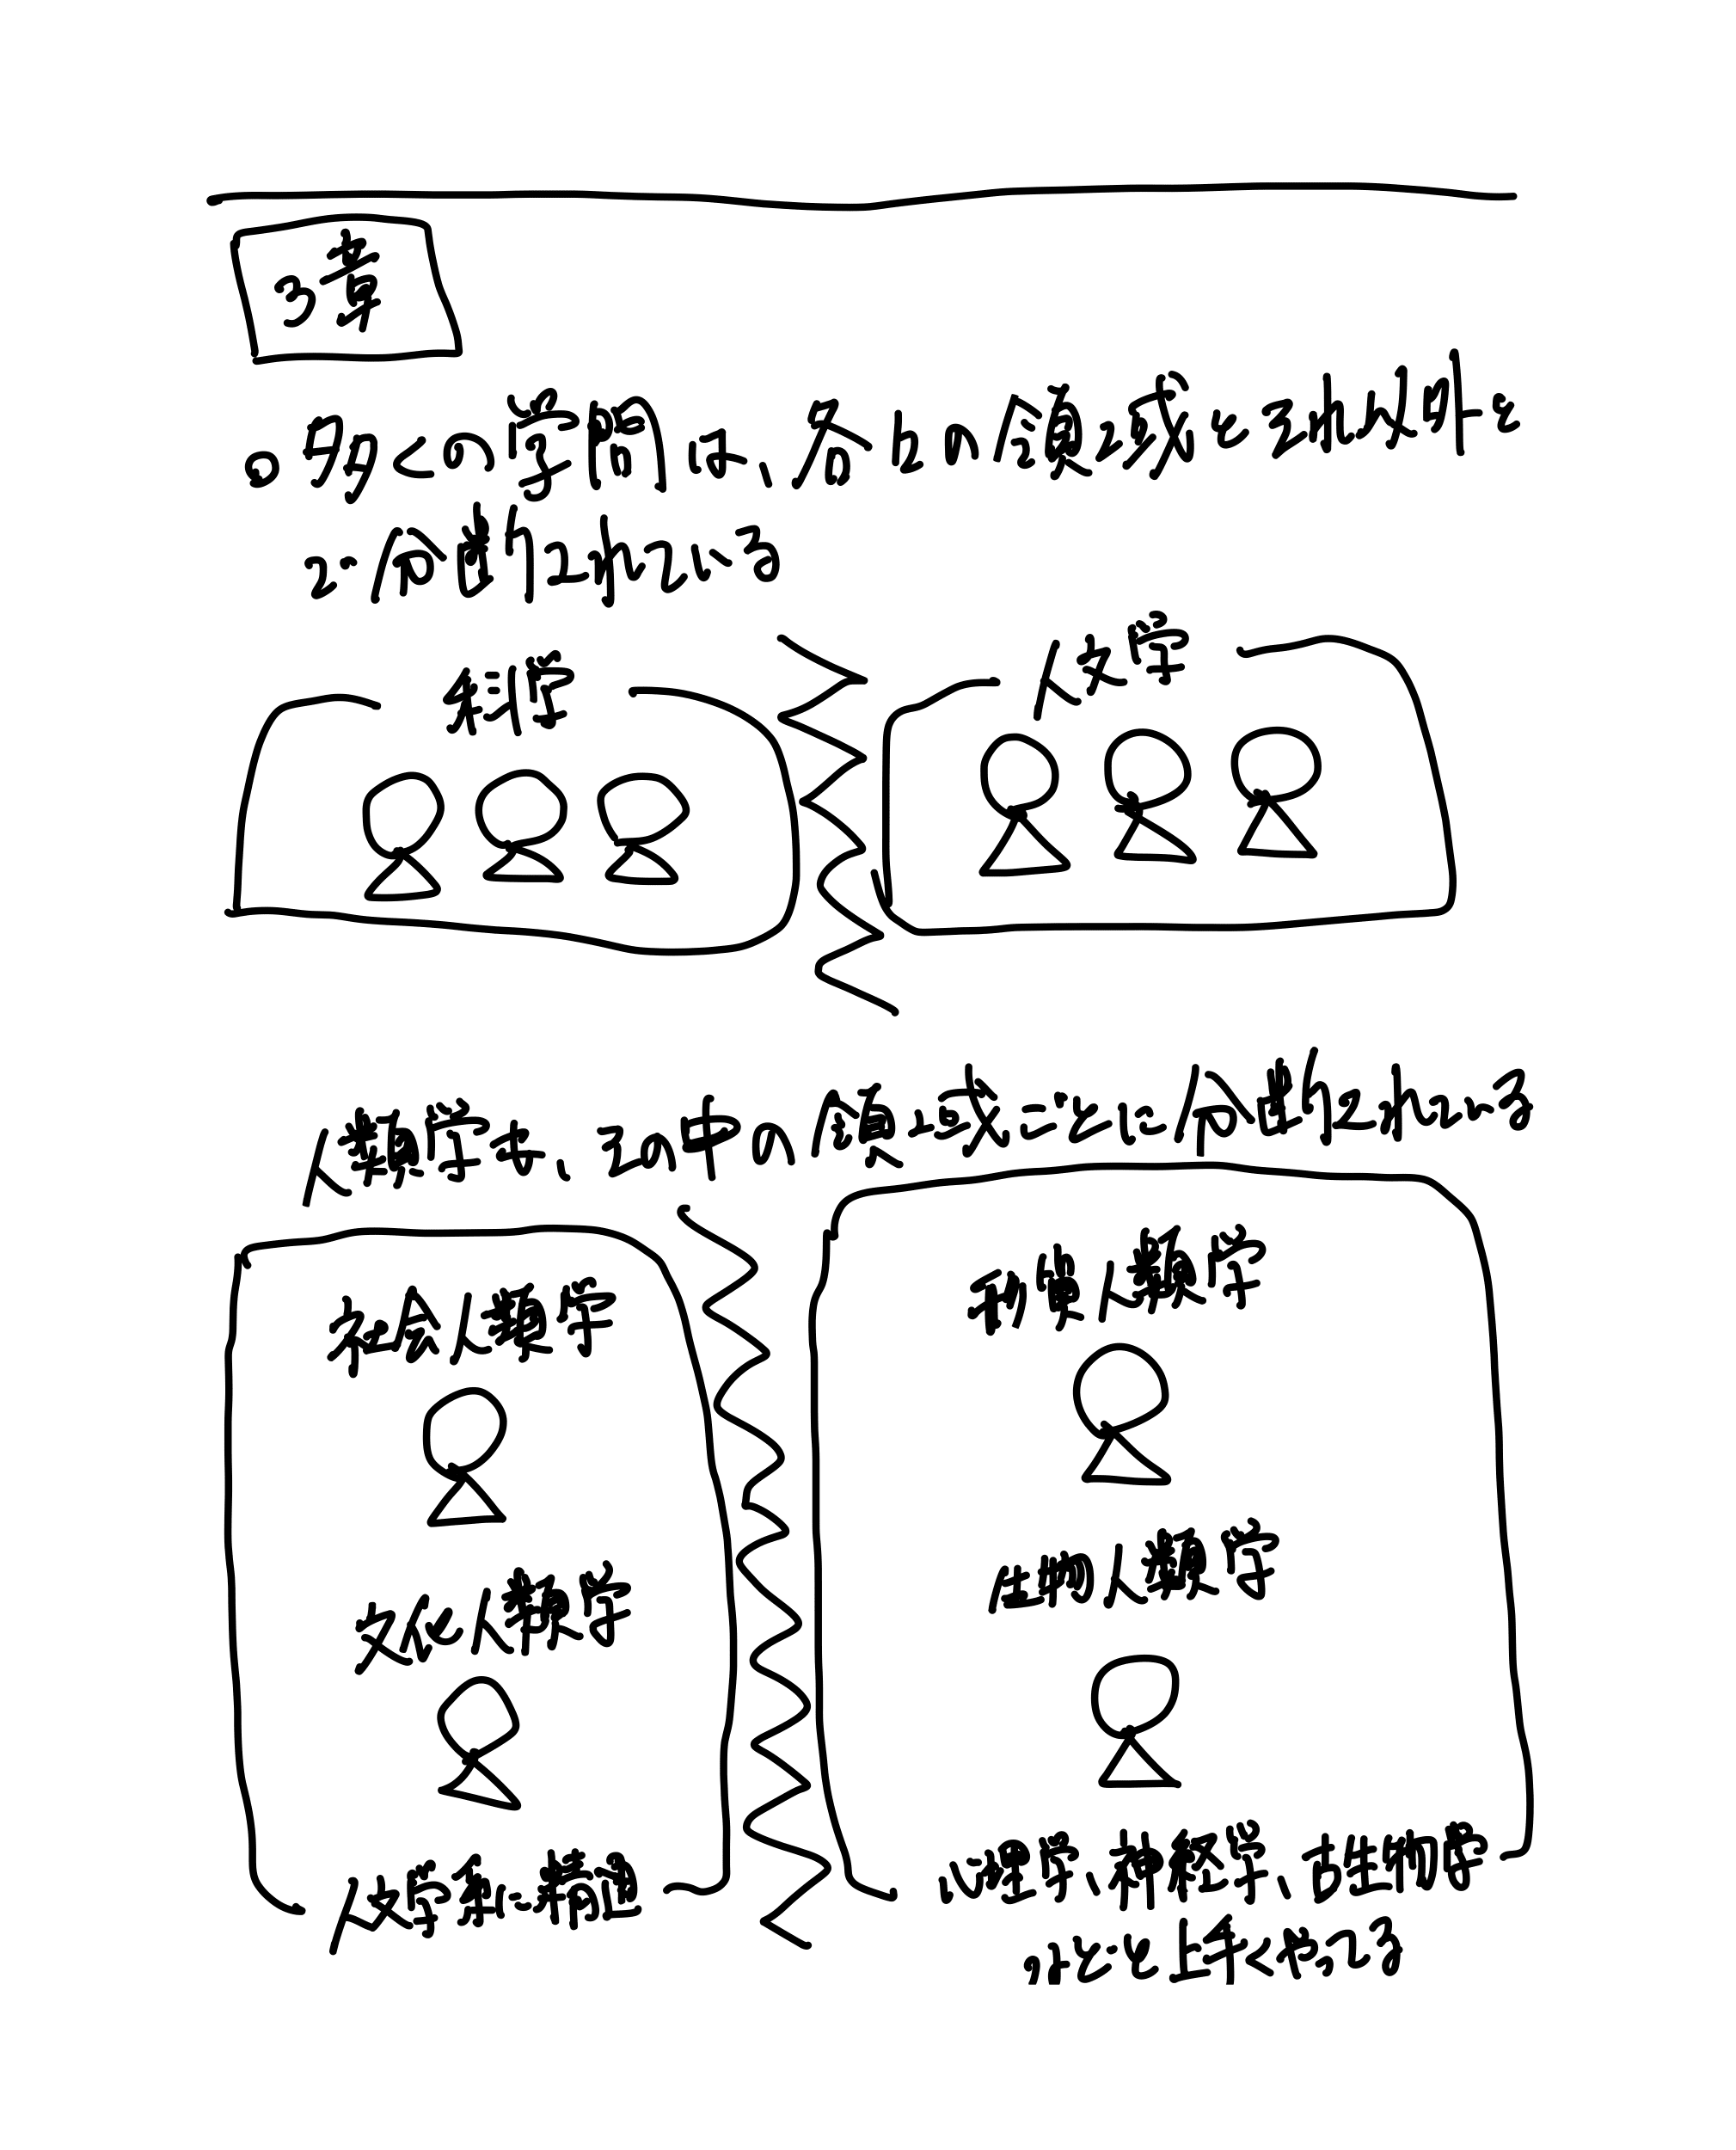 3章
。多くの学問は、ある1つの価値感とそれ以外と
で分断されている
経済学
人文学
人類学は、その中の価値感ごとに分断されている
社会人類学
文化人類学
人文学的に黄色
形態人類学
生物人類学
心理学、神経学、古生物学
などと上手くやってる